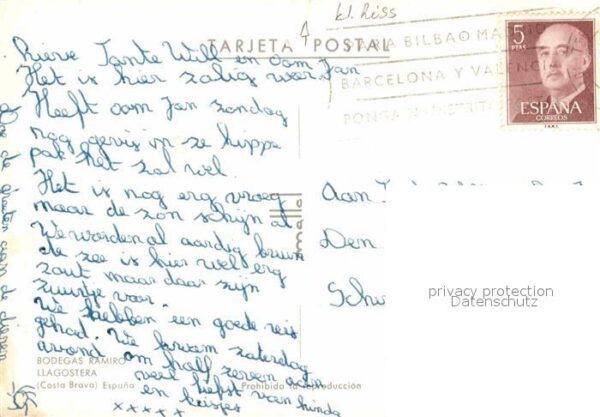 TARJETA POSTAL
kl. kiss
PARA BILBAO MA
BARCELONA Y VALEN
PONGA DISTRITO
5
PTAS
ESPAÑA
CORREOS
Lieve Tante Will en oom Jan
Het is hier zalig weer.
Heeft oom Jan zondag
nog gevist in ze
pak het zal wel.
Het is nog erg vroeg
maar de zon schijnt al
We worden al aardig bruin
de zee is hier wel erg
zout maar daar zijn
zuurtje voor.
We hebben een goede reis
gehad. We kwam zaterdag
avond om half zeven aan
veel liefst van Linda
en beisjes
xxxxx
Doe de groeten aan de
Aan
Den
Schw
mallol
privacy protection
Datenschutz
BODEGAS RAMIRO
LLAGOSTERA
(Costa Brava) España
Prohibida la reproducción